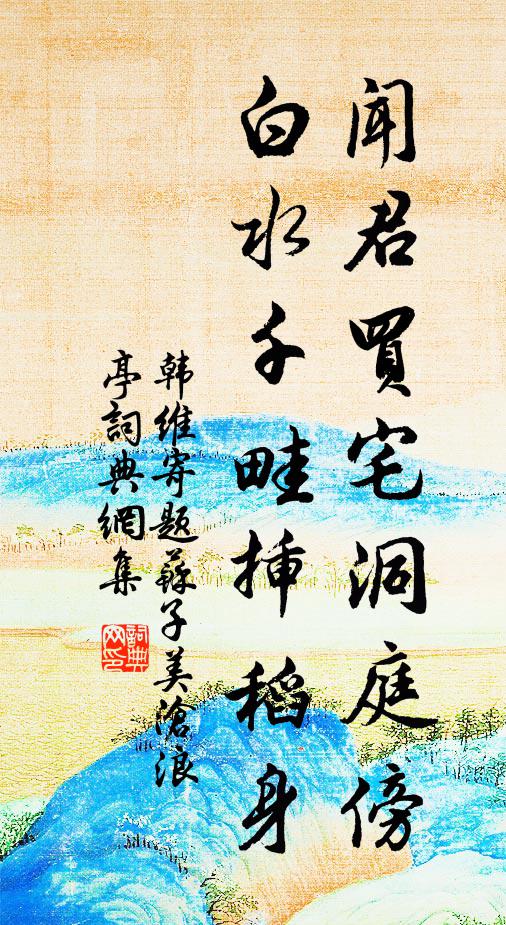 聞君買宅洞庭傍
白水千畦插稻身
韩維寄题蘇子美滄浪
亭詞典網集
詞典
网印